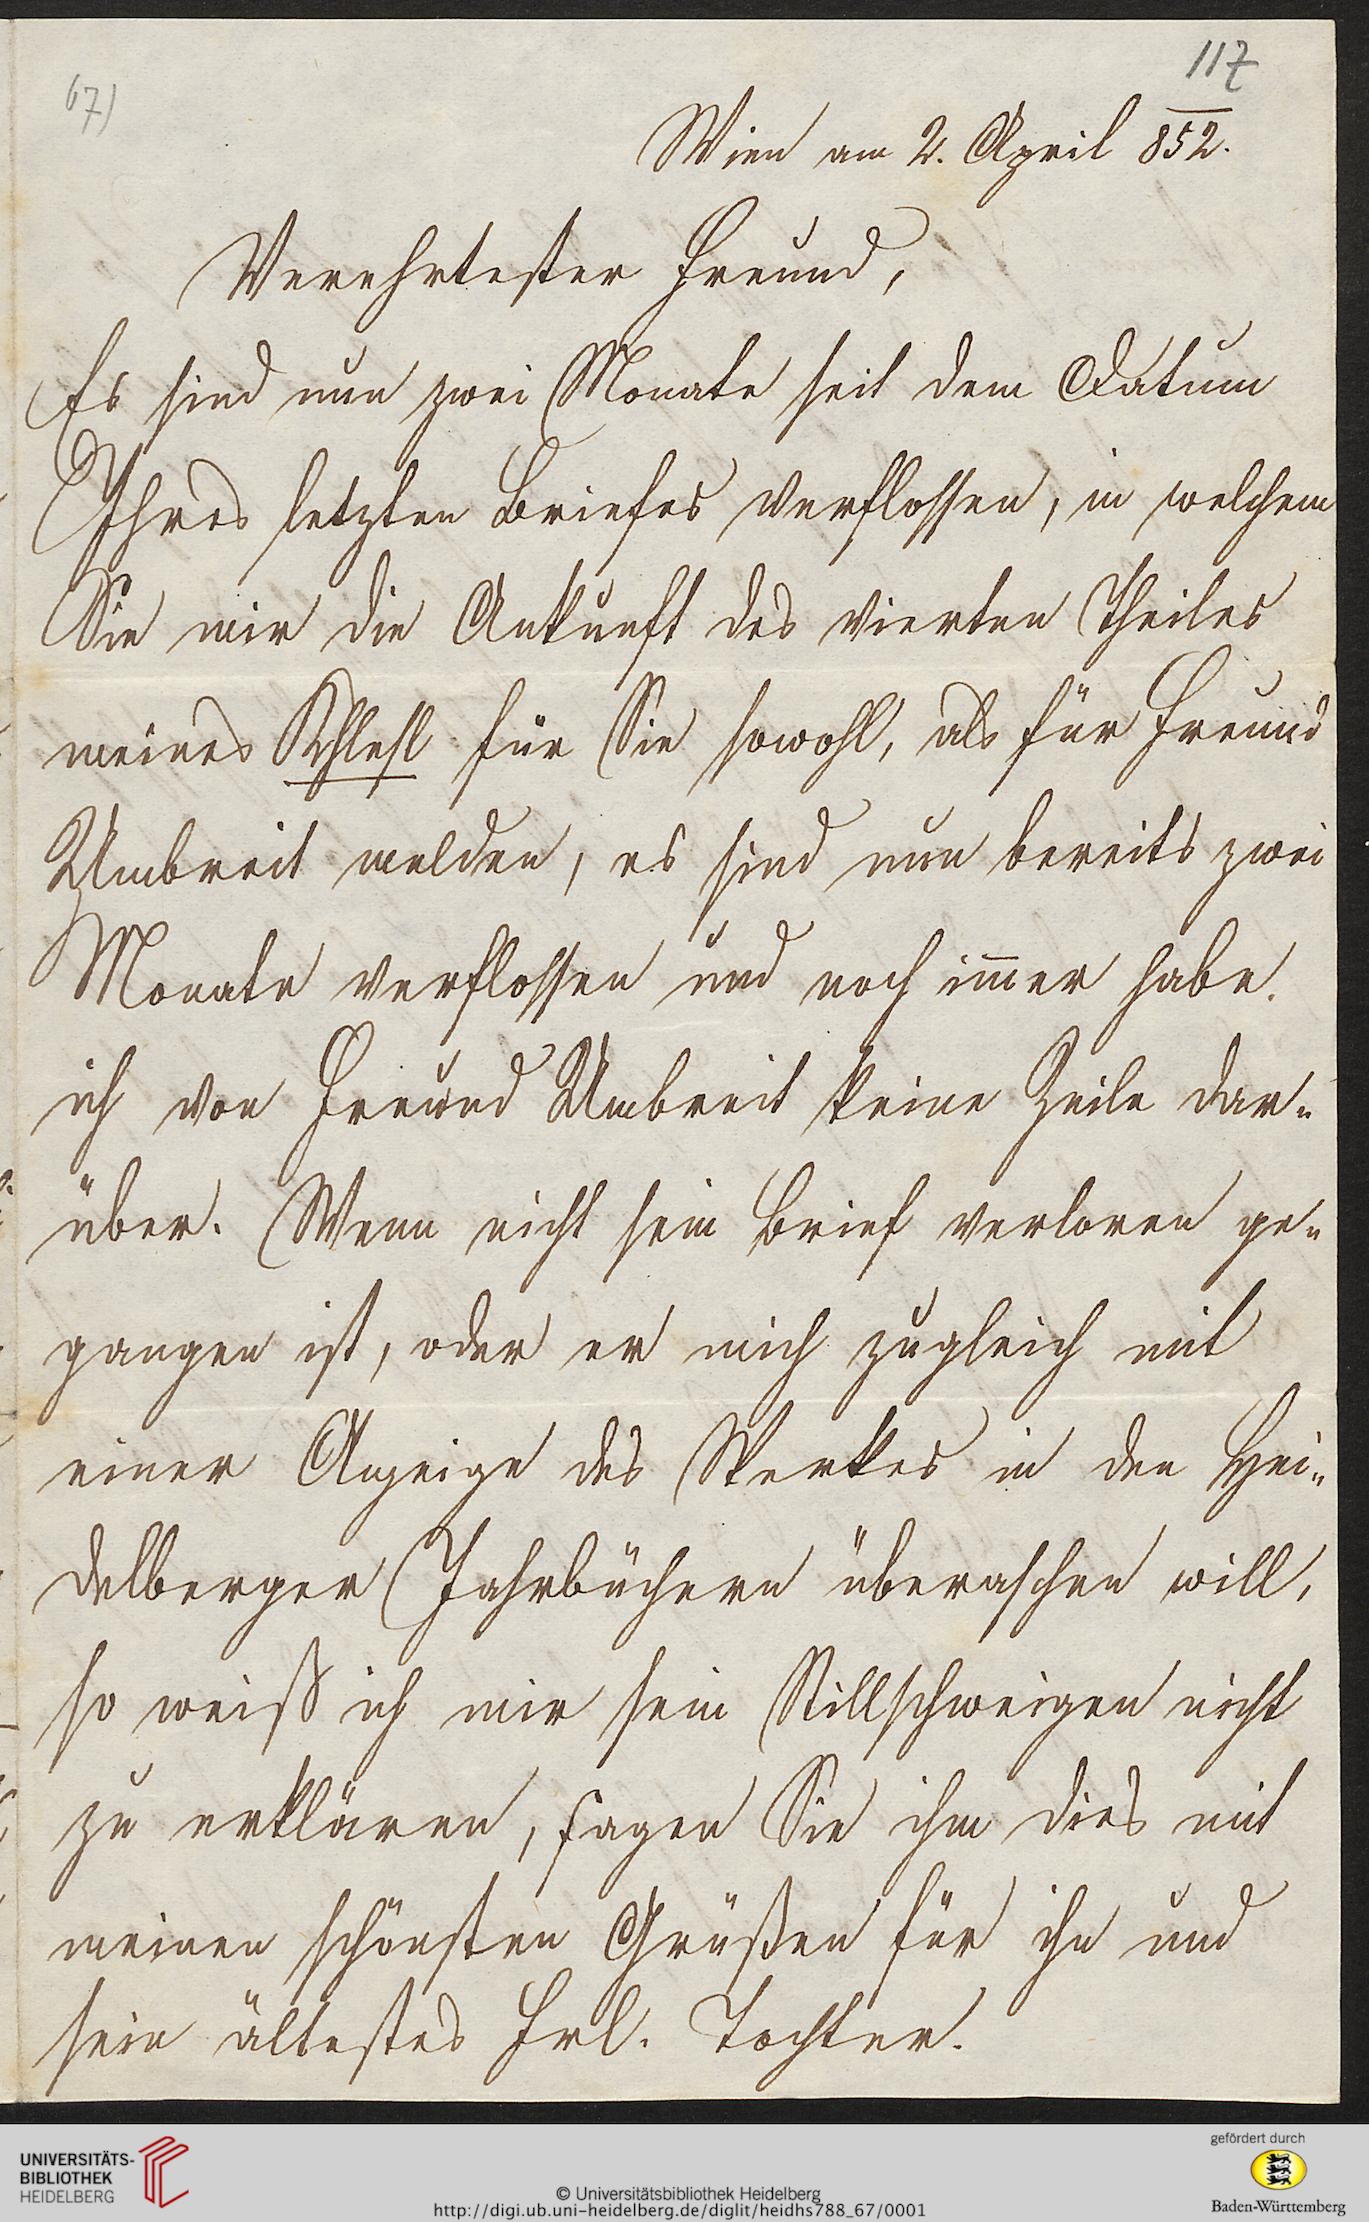 117
67)
Wien am 2. April 852.
Verehrtester Freund,
Es sind nun zwei Monate seit dem Datum
Ihres letzten Briefes verflossen, in welchem
Sie mir die Ankunft des vierten Theiles
meines Khlesl für Sie sowohl, als für Freund
Umbreit melden, es sind nun bereits zwei
Monate verflossen und noch im̄er habe
ich von Freund Umbreit keine Zeile dar-
über. Wenn nicht sein Brief verloren ge-
gangen ist, oder er mich zugleich mit
einer Anzeige des Werkes in den Hei-
delberger Jahrbüchern überaschen will,
so weiß ich mir sein Stillschweigen nicht
zu erklären, sagen Sie ihm dies mit
meinen schönsten Grüßen für ihn und
sein ältestes Frl. Tochter.
UNIVERSITÄTS-
BIBLIOTHEK
HEIDELBERG
© Universitätsbibliothek Heidelberg
http://digi.ub.uni-heidelberg.de/diglit/heidhs788_67/0001
gefördert durch
Baden-Württemberg